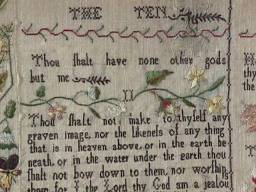 THE TEN
Thou shalt have none other gods
but me
II
Thou shalt not make to thyself any
graven image, nor the likenels of any thing
that is in heaven above, or in the earth be
neath, or in the water under the earth thou
shalt not bow down to them, nor worship
them for I the Lord thy God am a jealous
H
thy
the